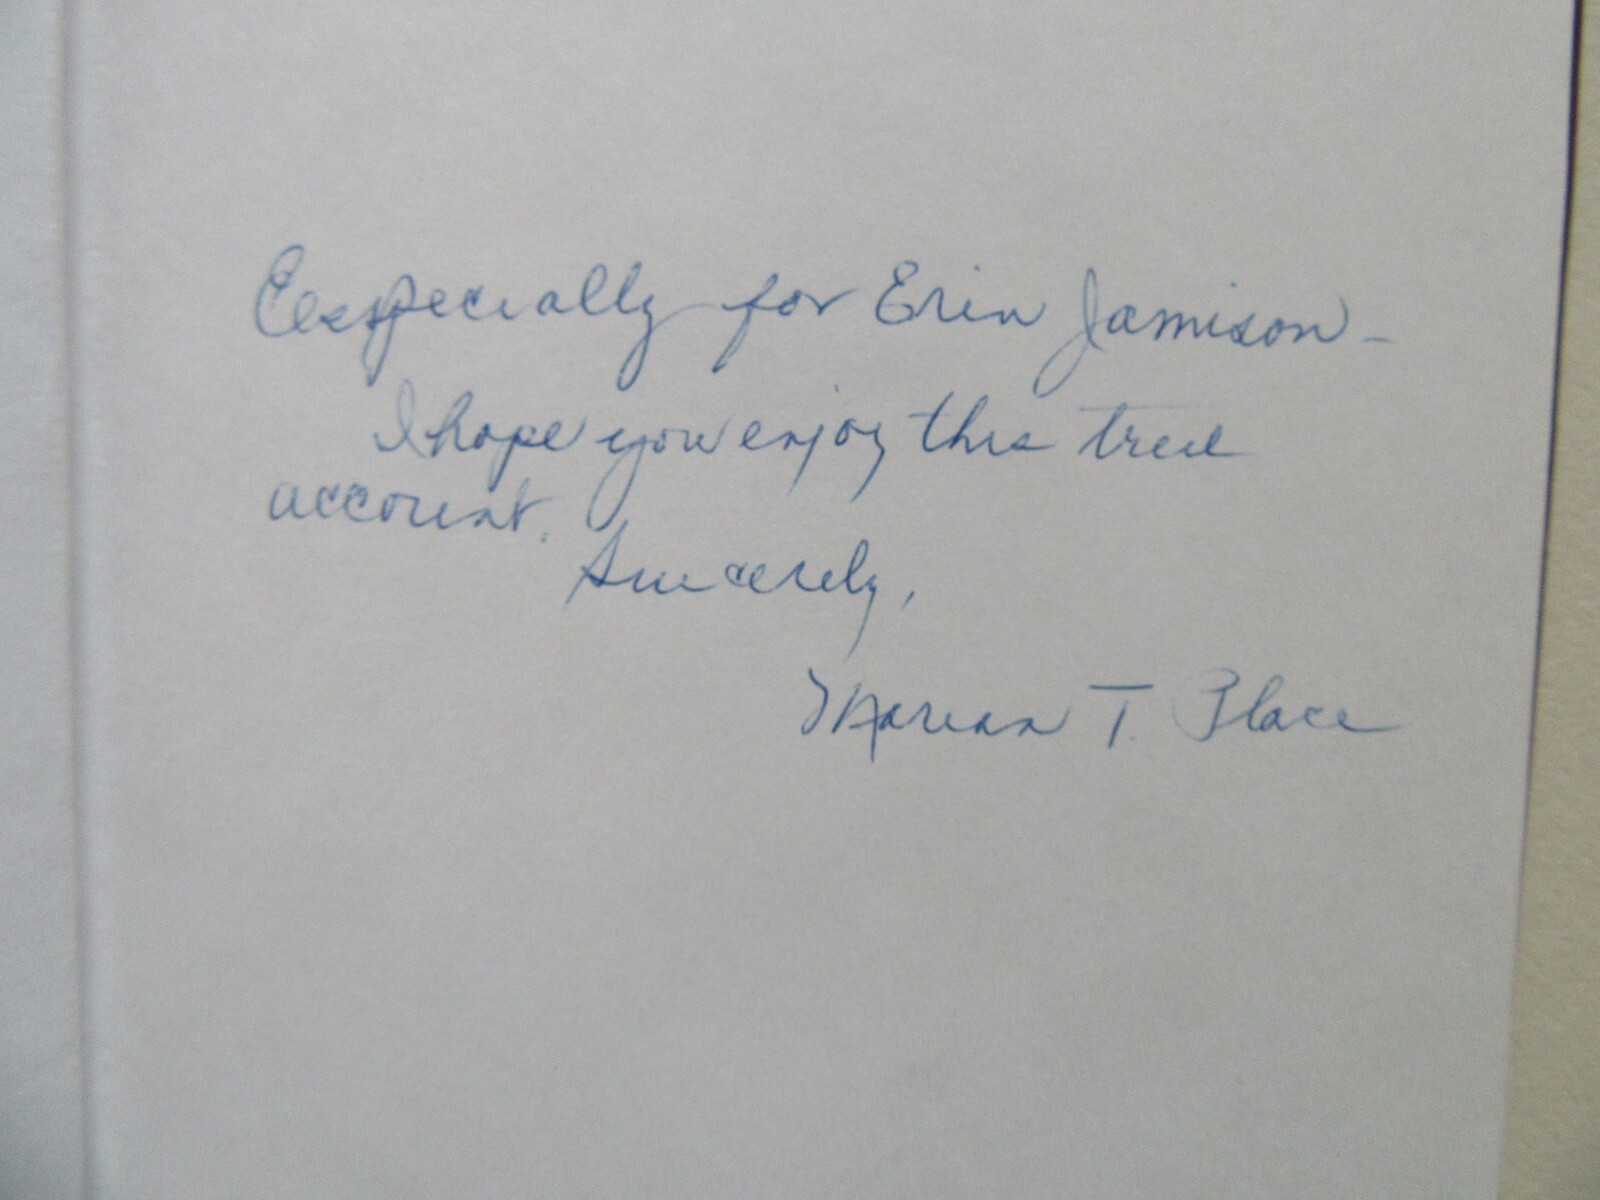 Especially for Erin Jamison -
I hope you enjoy this true
account.
Sincerely,
Marian T. Place